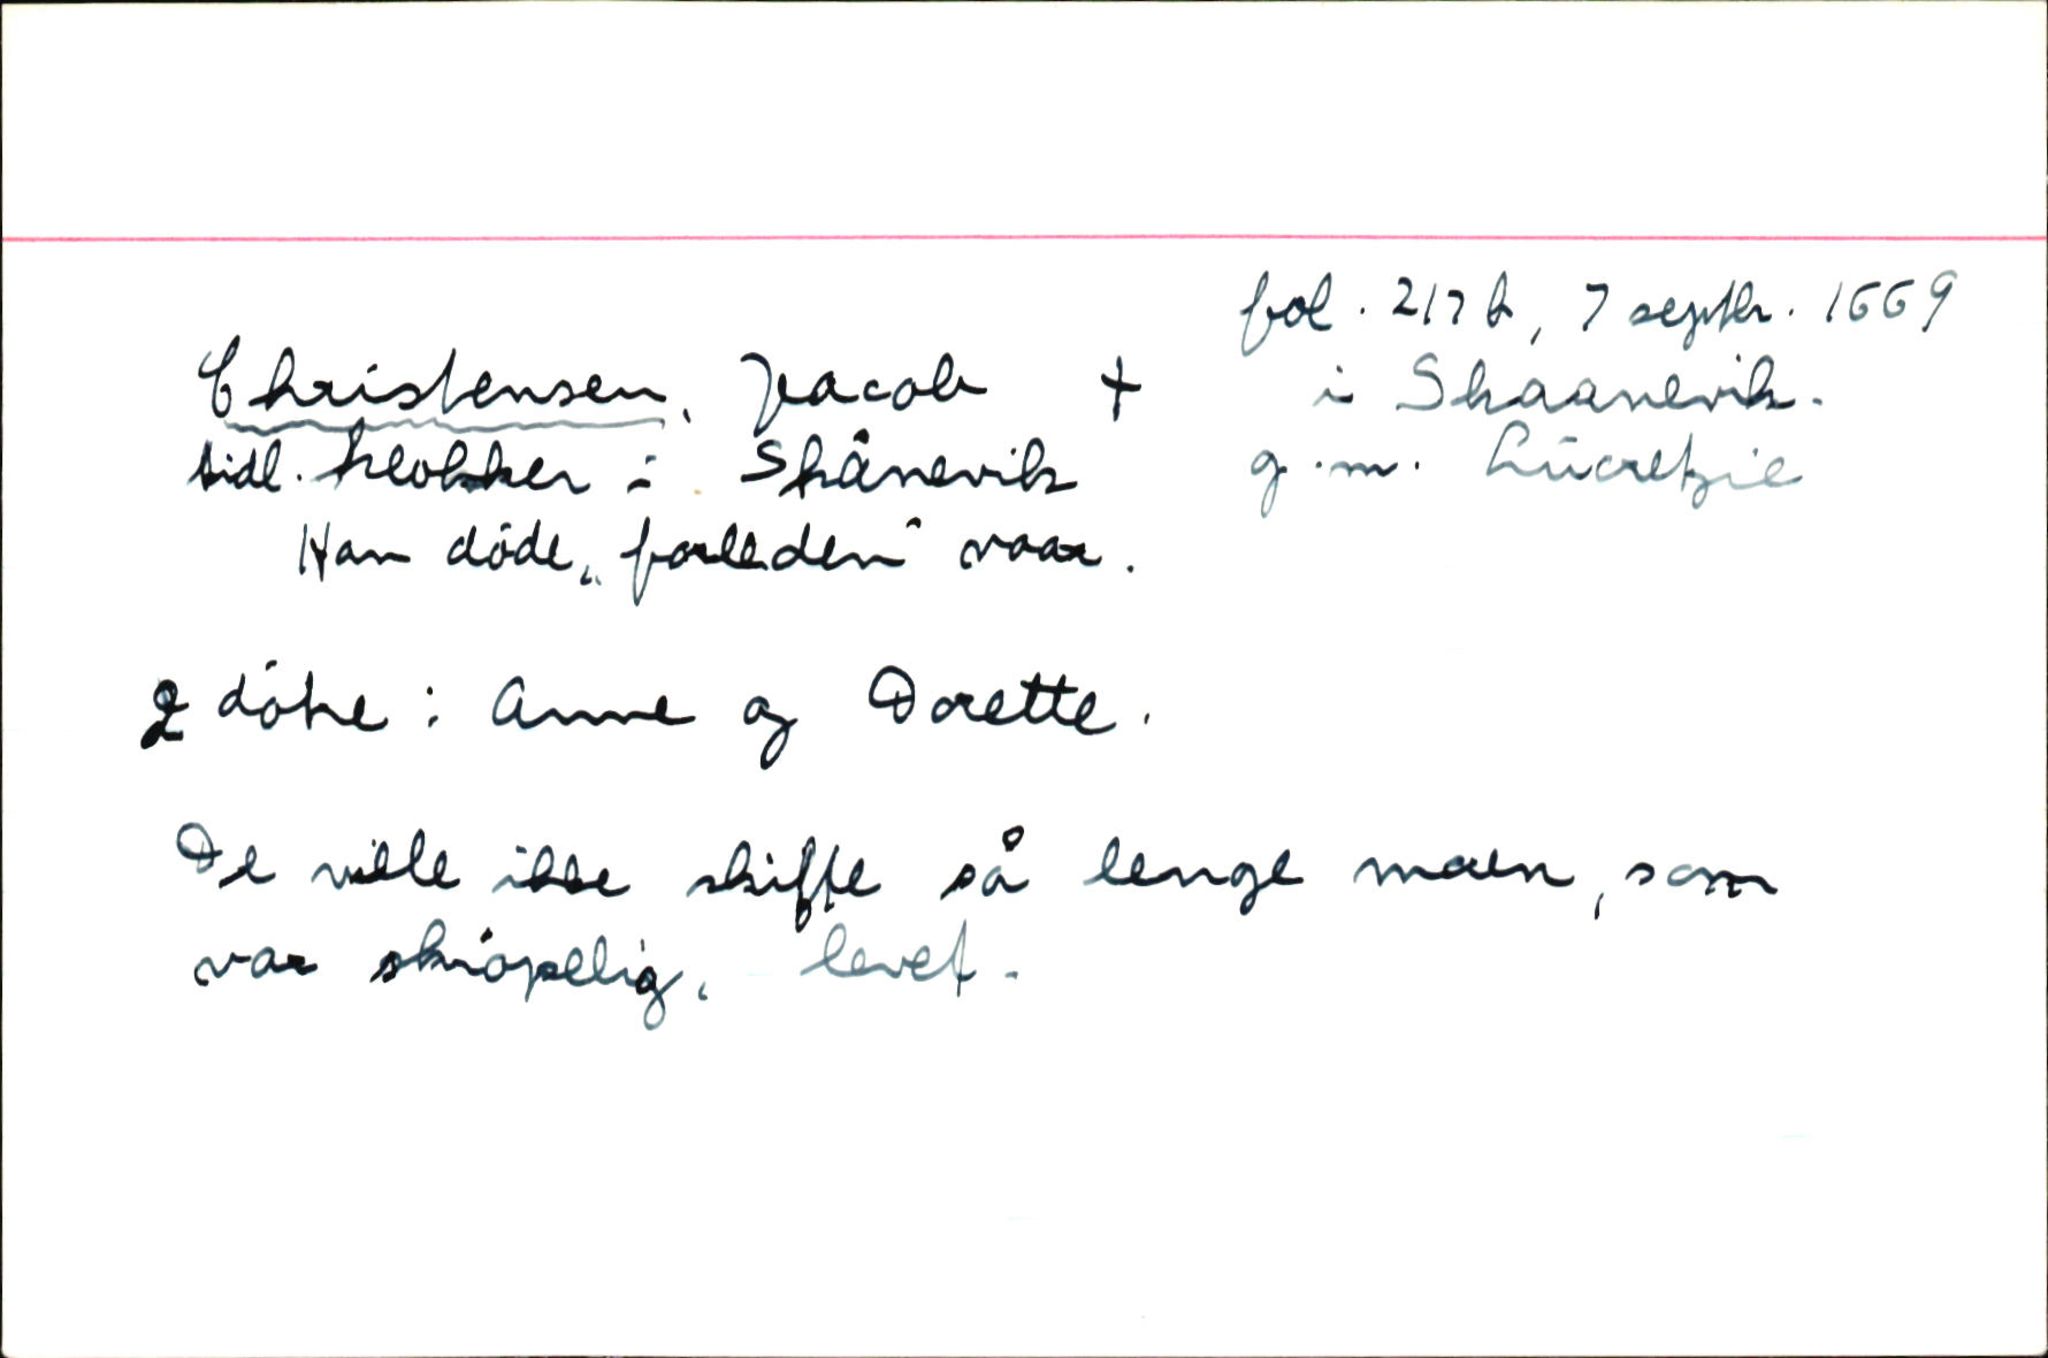 fol. 217 b, 7 septbr. 1669
Christensen, Jacob + i Skaanevik.
sidl. klokker i Skånevik g.m. Lucretzie
Han døde „forleden" vaar.
2 døtre: Anne og Dorette.
De ville ikke skifte så lenge moren, som
var skrøpelig, levet.